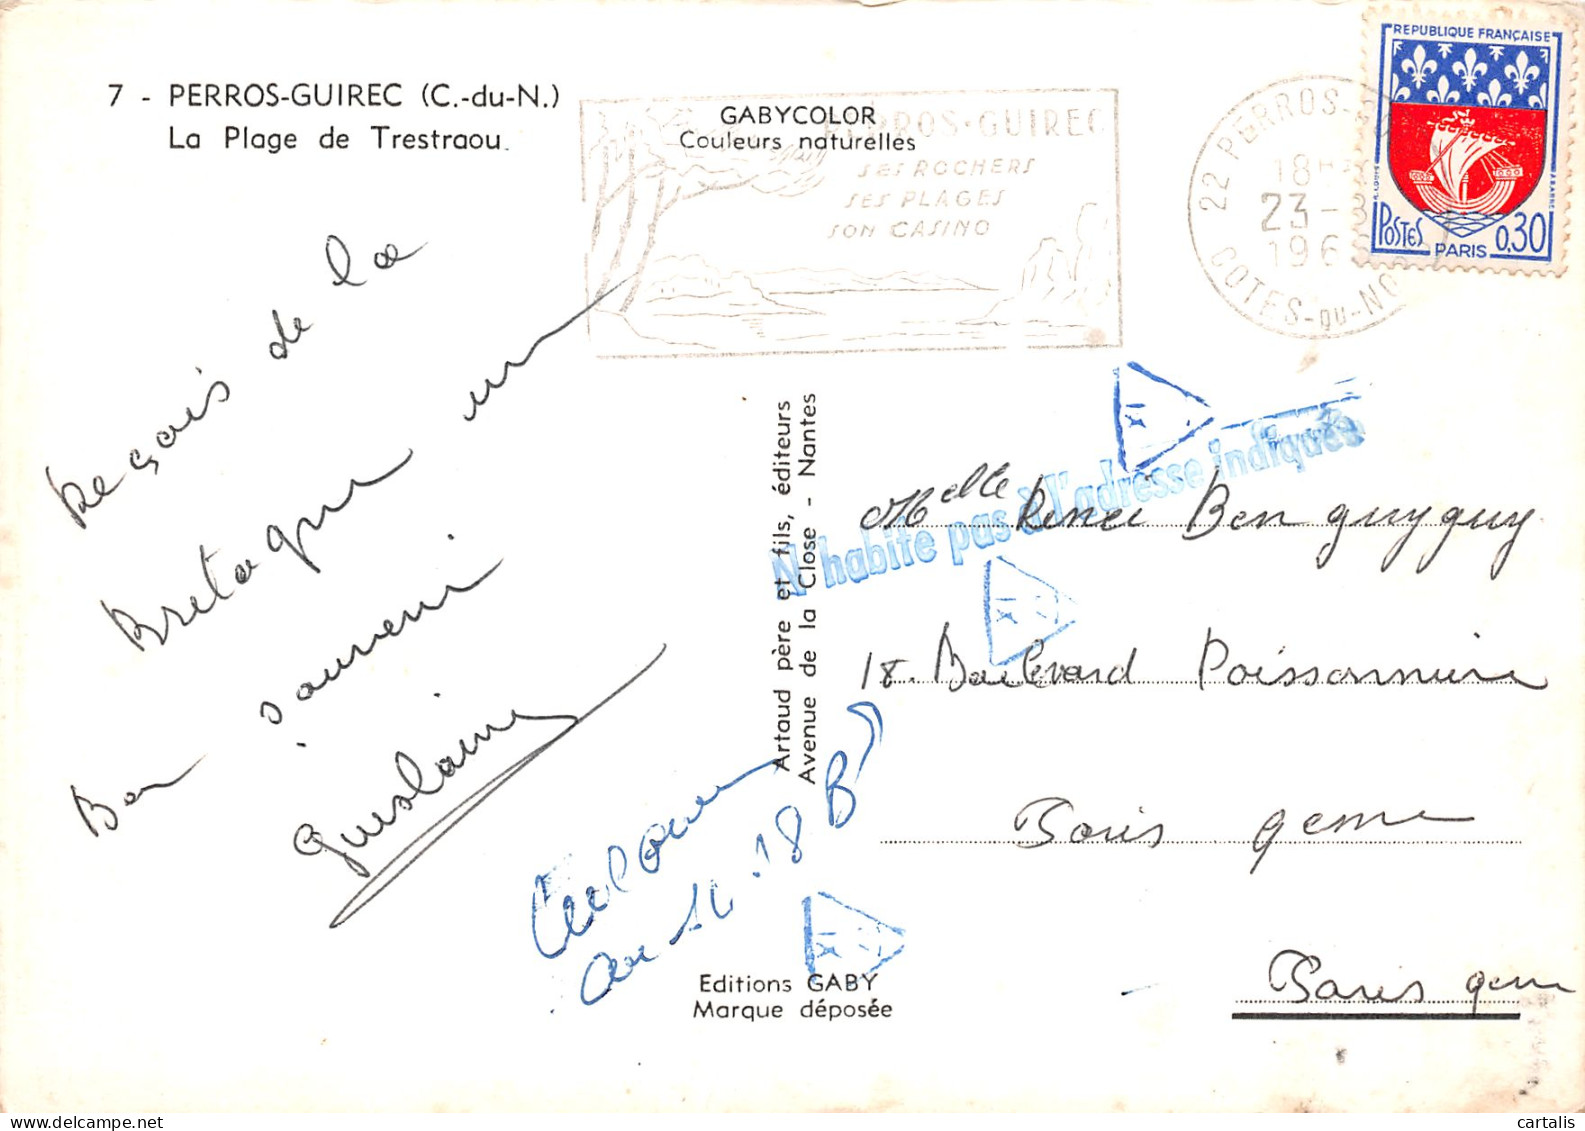 7 - PERROS-GUIREC (C.-du-N.)
La Plage de Trestraou.
GABYCOLOR
Couleurs naturelles
PERROS-GUIREC
SES ROCHERS
SES PLAGES
SON CASINO
22 PERROS-GU
18H
23-8
196
COTES-du-NO
REPUBLIQUE FRANÇAISE
POSTES
PARIS
0,30
Reçois de la
Bretagne un
Bon souvenir
Guislaine
Artaud père et fils, éditeurs
Avenue de la Close - Nantes
N'habite pas à l'adresse indiquée
Melle Renée Benguyguy
18. Boulevard Poissonnière
Paris 9eme
Paris 9eme
au 14.18 B
Editions GABY
Marque déposée
cartalis